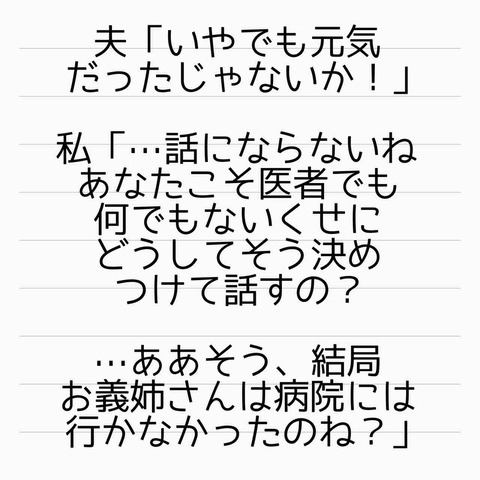 夫「いやでも元気
だったじゃないか！」
私「…話にならないね
あなたこそ医者でも
何でもないくせに
どうしてそう決め
つけて話すの？
…ああそう、結局
お義姉さんは病院には
行かなかったのね？」